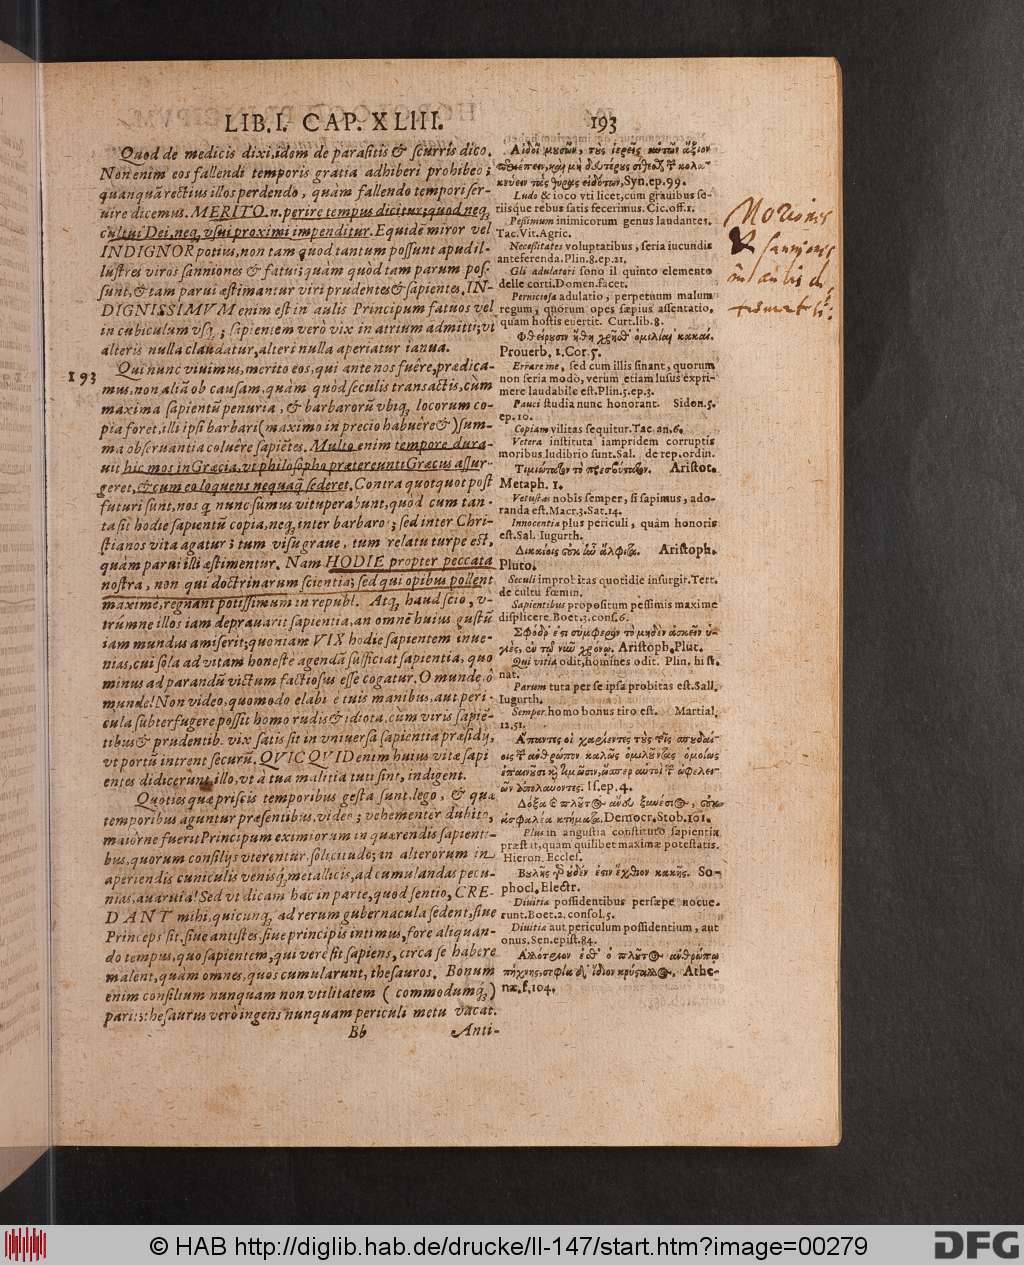 LIB. I. CAP. XLIII. 193
Quod de medicis dixi, idem de parasitis & scurris dico.
Non enim eos fallendi temporis gratia adhiberi prohibeo;
quanquã rectius illos perdendo, quàm fallendo tempori ser-
uire dicemus. MERITO.n.perire tempus dicitur, quod neq;
cultui Dei, neq; vsui proximi impenditur. Equidē miror vel
INDIGNOR potius, non tam quòd tantum possunt apud il-
lustres viros sanniones & fatui; quàm quòd tam parum pos-
sunt, & tam parui æstimantur viri prudentes & sapientes. IN-
DIGNISSIMVM enim est in aulis Principum fatuos vel
in cubiculum vsq; ; sapientem verò vix in atrium admitti; vt
alteris nulla claudatur, alteri nulla aperiatur ianua.
193 Qui nunc viuimus, merito eos, qui ante nos fuêre, prædica-
mus, non aliã ob causam, quàm quòd seculis transactis, cùm
maxima sapientũ penuria, & barbarorũ vbiq; locorum co-
pia foret, illi ipsi barbari (maximo in precio habuêre &) sum-
ma obseruantia coluêre sapiẽtes. Multo enim tempore dura-
uit hic mos in Græcia, vt philosopho prætereunti Græcus assur-
geret, & cum eo loquens nequaq̃ sederet. Contra quotquot post
futuri sunt, nos q nunc sumus vituperabunt, quòd cum tan-
ta sit hodie sapientũ copia, neq; inter barbaros; sed inter Chri-
stianos vita agatur; tum visu graue, tum relatu turpe est,
quàm parui illi æstimentur. Nam HODIE propter peccata
nostra, non qui doctrinarum scientia; sed qui opibus pollent
maximè, regnant potissimum in republ. Atq; haud scio, v-
trumne illos iam deprauarit sapientia, an omnẽ huius gustũ
iam mundus amiserit; quoniam VIX hodie sapientem inue-
nias, cui sola ad vitam honeste agendã sufficiat sapientia, quo
minus ad parandũ victum factiosus esse cogatur. O munde, ô
munde! Non video, quomodo elabi è tuis manibus, aut peri-
cula subterfugere possit homo rudis & idiota, cùm viris sapiẽ-
tibus & prudentib. vix satis sit in vniuersa sapientia præsidij,
vt portũ intrent securũ. QVICQVID enim huius vitæ sapi
entes didicerunt, illo, vt à tua malitia tuti sint, indigent.
Quoties quæ priscis temporibus gesta sunt, lego, & quæ
temporibus aguntur præsentibus, video; vehementer dubito,
maiórne fuerit Principum eximiorum in quærendis sapienti-
bus, quorum consilijs vterentur, solicitudo; in alterorum in
aperiendis cuniculis venisq́; metallicis, ad cumulandas pecu-
nias, auaritia! Sed vt dicam hac in parte, quod sentio, CRE-
DANT mihi, quicunq; ad rerum gubernacula sedent, siue
Princeps sit, siue antistes, siue principis intimus, fore aliquan-
do tempus, quo sapientem, qui verè sit sapiens, circa se habere
malent, quàm omnes, quos cumularunt, thesauros. Bonum
enim consilium nunquam non vtilitatem (commodumq́;)
parit; thesaurus verò ingens nunquam periculi metu vacat.
Bb Anti-
Syn. ep. 99.
Ludo & ioco vti licet, cum grauibus se-
riisque rebus satis fecerimus. Cic. off. 1.
Pessimum inimicorum genus laudantes.
Tac. Vit. Agric.
Necessitates voluptatibus, seria iucundis
anteferenda. Plin. 8. ep. 21.
Gli adulatori sono il quinto elemento
delle corti. Domen. facet.
Perniciosa adulatio, perpetuum malum
regum; quorum opes sæpius assentatio,
quam hostis euertit. Curt. lib. 8.
Φθείρουσιν ἤθη χρῆσθ' ὁμιλίαι κακαί.
Prouerb. 1. Cor. 5.
Errare me, sed cum illis sinant, quorum
non seria modò, verùm etiam lusus expri-
mere laudabile est. Plin. 5. ep. 3.
Pauci studia nunc honorant. Sidon. 5.
ep. 10.
Copiam vilitas sequitur. Tac. an. 6.
Vetera instituta iampridem corruptis
moribus ludibrio sunt. Sal. de rep. ordin.
Τιμιώτατον τὸ πρεσβύτατον. Aristot.
Metaph. 1.
Vetustas nobis semper, si sapimus, ado-
randa est. Macr. 3. Sat. 14.
Innocentia plus periculi, quàm honoris
est. Sal. Iugurth.
Aristoph.
Pluto.
Seculi improbitas quotidie insurgit. Tert.
de cultu fœmin.
Sapientibus propositum pessimis maximè
displicere. Boet. 3. cons. 6.
Aristoph. Plut.
Qui vitia odit, homines odit. Plin. hist.
nat.
Parum tuta per se ipsa probitas est. Sall.
Iugurth.
Semper homo bonus tiro est. Martial.
12. 51.
Is. ep. 4.
Democr. Stob. 101.
Plus in angustia constituto sapientia
præstit, quam quilibet maximæ potestatis.
Hieron. Eccles.
So-
phocl. Electr.
Diuitiæ possidentibus persæpe nocue-
runt. Boet. 2. consol. 5.
Diuitiæ aut periculum possidentium, aut
onus. Sen. epist. 84.
Athe-
næ. f. 104.
Moriones
& sanniones
in aulis
© HAB http://diglib.hab.de/drucke/ll-147/start.htm?image=00279
DFG